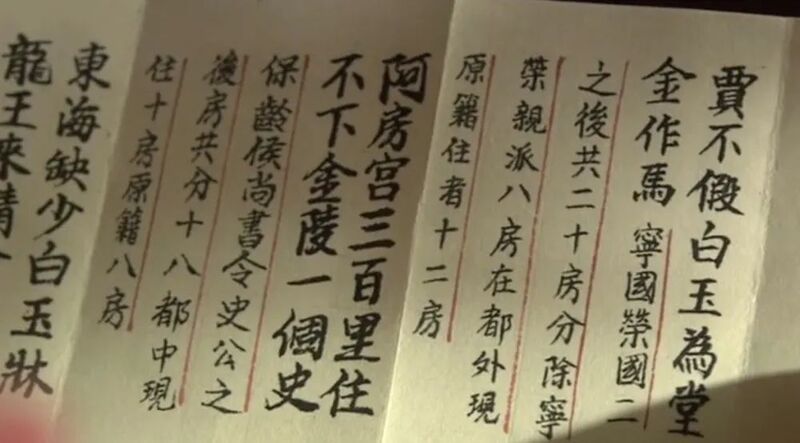 賈不假白玉為堂
金作馬 寧國榮國二
之後共二十房分除寧
榮親派八房在都外現
原籍住者十二房
阿房宮三百里住
不下金陵一個史
保齡侯尚書令史公之
後房共分十八都中現
住十房原籍八房
東海缺少白玉牀
龍王來請